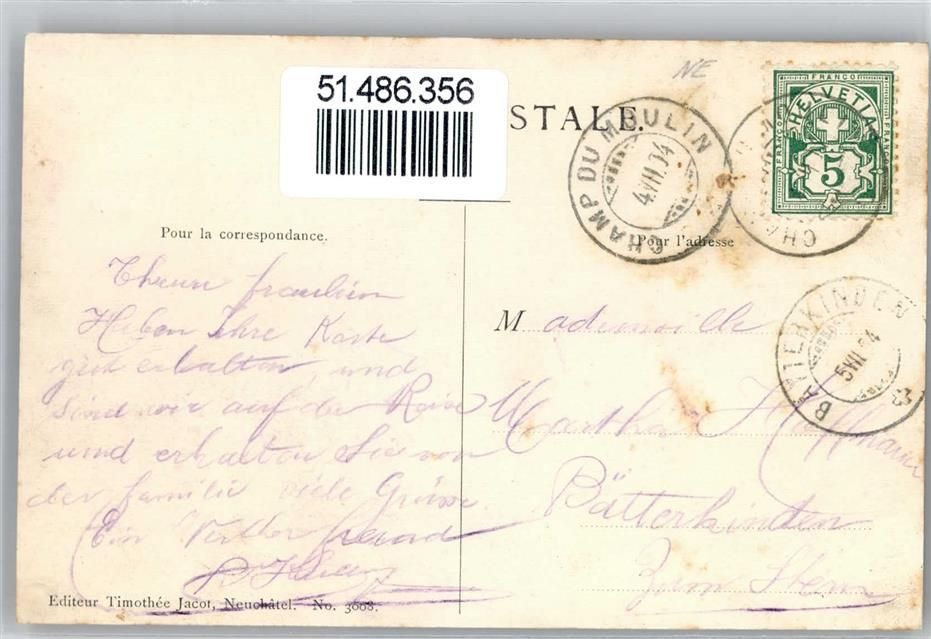 51.486.356
NE
STALE.
FRANCO
HELVETIA
FRANCO
FRANCO
5
CHAMP DU MOULIN
4.VII.04
CHA
BÄTTERKINDEN
5.VII.04
Pour la correspondance.
Pour l'adresse
Theure fraulien
Haben Ihre Karte
gut erhalten, und
Sind wir auf der Reise
und erhalten Sie von
der familie viele Grüsse.
Ein
Mademoiselle
Martha Hoffmann
Bätterkinden
Zum Stern
Editeur Timothée Jacot, Neuchâtel. No. 3008.